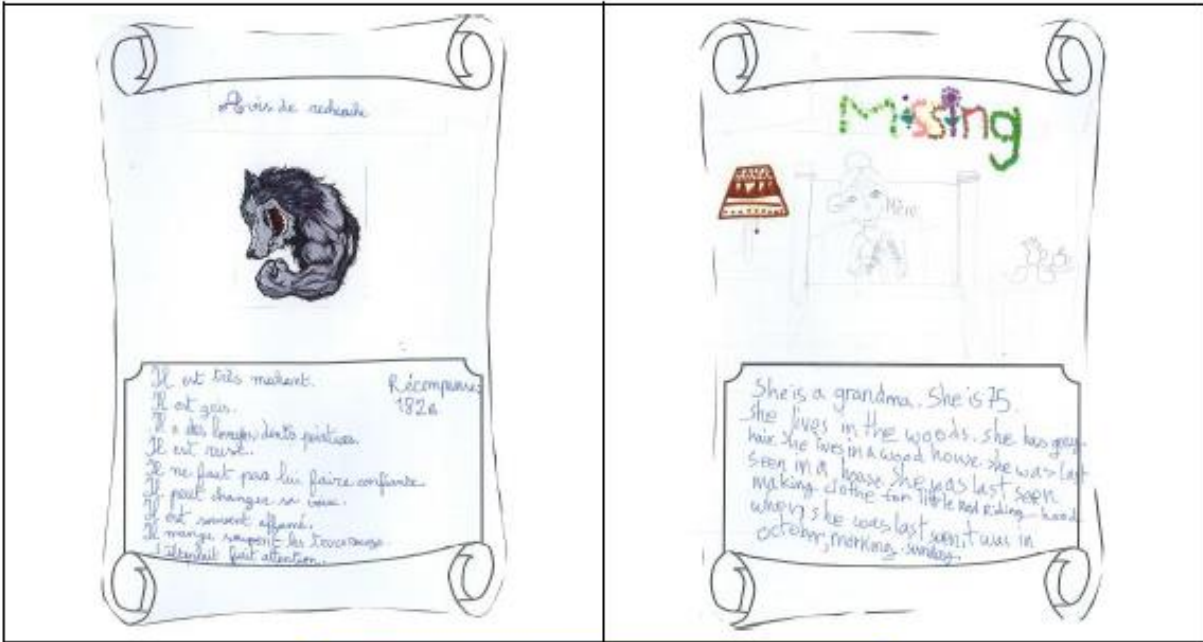 Avis de recherche
Il est très méchant.
Il est gris.
Il a des longes dents pointues.
Il est rusé.
Il ne faut pas lui faire confiance.
Il peut changer sa voix.
Il est souvent affamé.
Il mange souvent les
fait attention.
Récompense:
182
Missing
She is a grandma. She is 75.
she lives in the woods. she has grey
hair. She lives in a wood house. she was last
seen in a house. She was last seen
making clothe for little Red Riding-hood
when she was last seen, it was in
october, morking sunday.